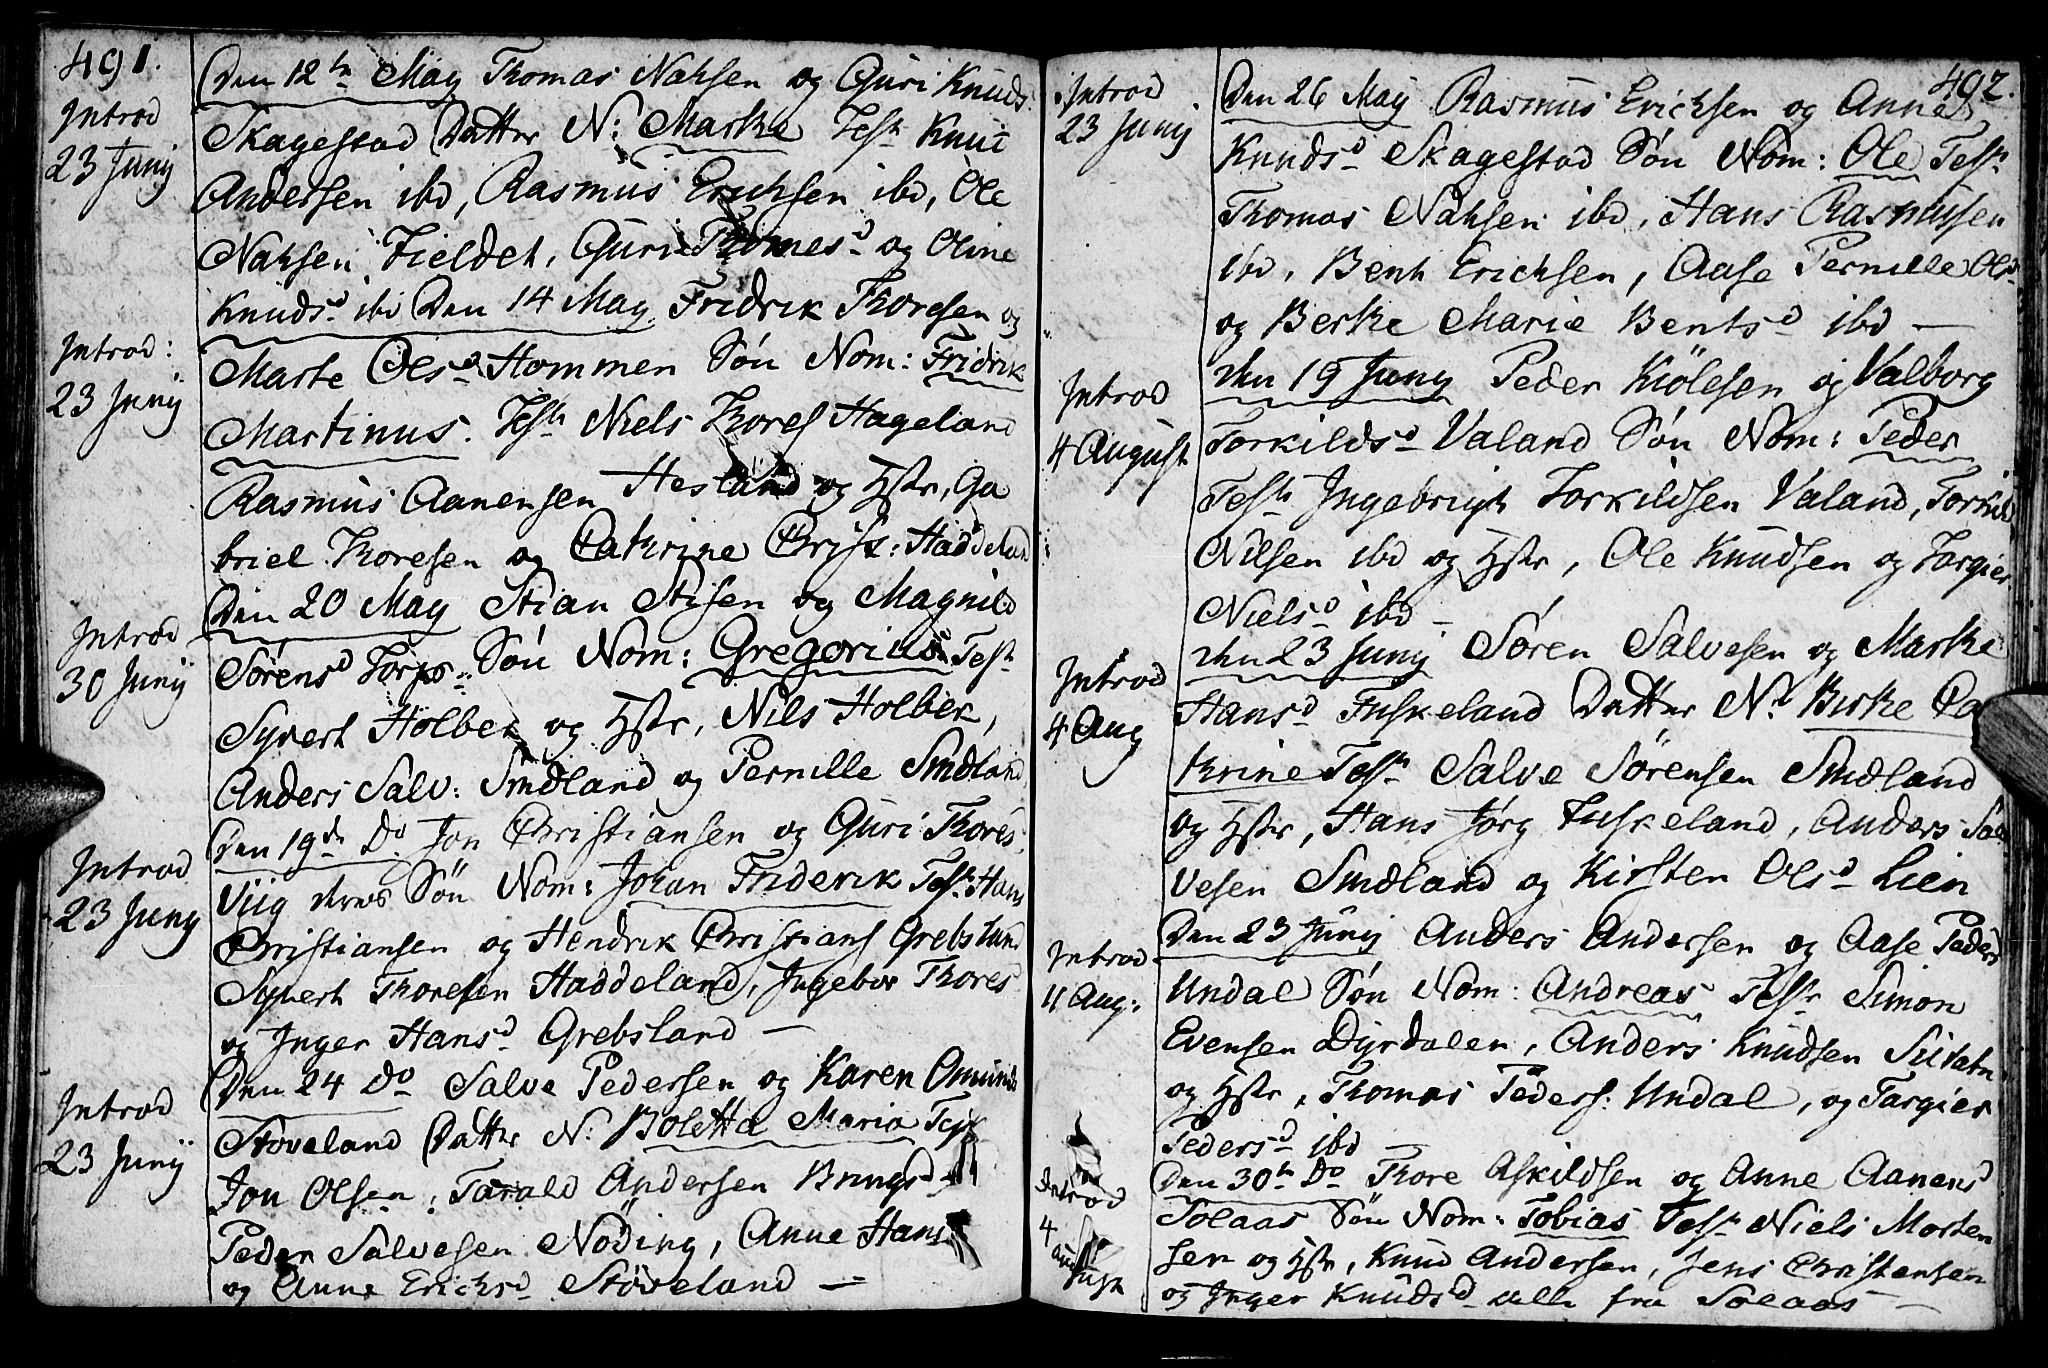 491.
Introd
23 Junij
Den 12te May Thomas Nahsen og Guri Knuds.
Skagestad Datter N: Marthe Test Knut
Andersen ibd, Rasmus Erichsen ibd, Ole
Nahsen Fieldet, Guri Thomesd og Oline
Knudsd ibd Den 14 May Fridrik Thoresen og
Introd:
23 Junij
Marte Olsd Hommen Søn Nom: Fridrik
Martinus. Test Niels Thores Hageland
Rasmus Aanensen Hesland og Hstr, Ga
briel Thoresen og Cathrine Chris: Haddeland
Den 20 May Stian Stisen og Magnild
Introd
30 Junij
Sørensd Torps Søn Nom: Gregorius Test
Syvert Holbek og Hstr, Nils Holbek,
Anders Salv: Smedland og Pernille Smedland
Den 19de Do Jon Christiansen og Guri Thores
Introd
23 Juny
Viig deres Søn Nom: Johan Friderik Test: Hans
Christiansen og Hendrik Christians Grebsland
Syvert Thoresen Haddeland, Ingebor Thores
og Inger Hansd Grebsland —
Den 24 Do Salve Pedersen og Karen Omunds
Introd
23 Junij
Støveland Datter N: Boletta Maria Test
Jon Olsen, Tarald Andersen
Peder Salvesen Nöding, Anne Hans
og Anne Erichsd Støveland —
492.
Introd
23 Junij
Den 26 May Rasmus Erichsen og Anne
Knudsd Skagestad Søn Nom: Ole Test
Thomas Nahsen ibd, Hans Rasmussen
ibd, Bent Erichsen, Aase Pernille Olsd
og Berthe Marie Bentsd ibd —
Introd
4 August
den 19 Juny Peder Kiölesen og Valborg
Torkildsd Valand Søn Nom: Peder
Test Ingebrigt Torkildsen Valand, Torkild
Nilsen ibd og Hstr, Ole Knudsen og Targier
Nielsd ibd —
Introd
4 Aug
den 23 Junij Søren Salvesen og Marthe
Hansd Fuskeland Datter Nd Birthe Ca
thrine Test Salve Sørensen Smedland
og Hstr, Hans Jørg Fuskeland, Anders Sal
vesen Smedland og Kirsten Olsd Lien
Introd
11 Aug:
Den 23 Junij Anders Andersen og Aase Pedersd
Undal Søn Nom: Andreas Test Simon
Evensen Dyrdalen, Anders Knudsen
og Hstr, Thomas Peders: Undal, og Targier
Pedersd ibd —
Introd
4
August
Den 30te Do Thore Askildsen og Anne Aanensd
Solaas Søn Nom: Tobias Test Niels Morten
sen og Hstr, Knud Andersen, Jens Christensen
og Inger Knudsd alle fra Solaas —